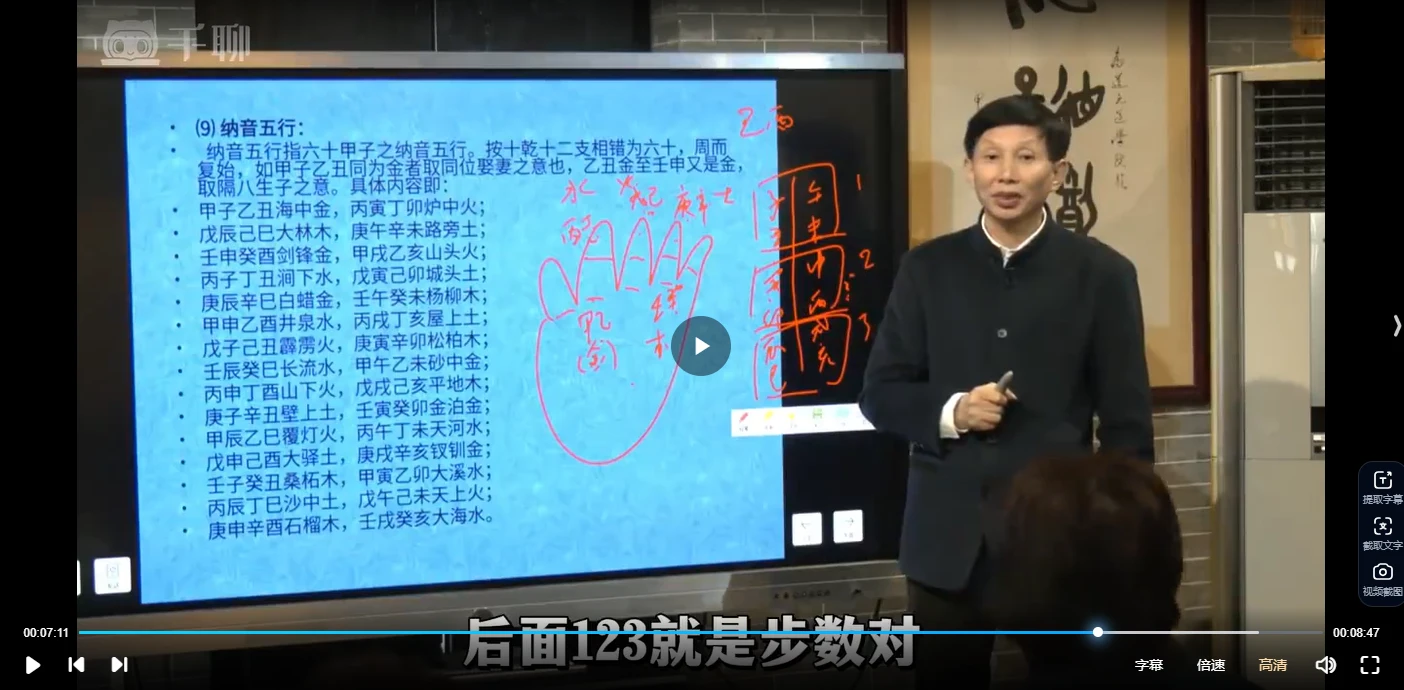 千聊
⑼ 纳音五行：
纳音五行指六十甲子之纳音五行。按十乾十二支相错为六十，周而
复始，如甲子乙丑同为金者取同位娶妻之意也，乙丑金至壬申又是金，
取隔八生子之意。具体内容即：
甲子乙丑海中金，丙寅丁卯炉中火；
戊辰己巳大林木，庚午辛未路旁土；
壬申癸酉剑锋金，甲戌乙亥山头火；
丙子丁丑涧下水，戊寅己卯城头土；
庚辰辛巳白蜡金，壬午癸未杨柳木；
甲申乙酉井泉水，丙戌丁亥屋上土；
戊子己丑霹雳火，庚寅辛卯松柏木；
壬辰癸巳长流水，甲午乙未砂中金；
丙申丁酉山下火，戊戌己亥平地木；
庚子辛丑壁上土，壬寅癸卯金泊金；
甲辰乙巳覆灯火，丙午丁未天河水；
戊申己酉大驿土，庚戌辛亥钗钏金；
壬子癸丑桑柘木，甲寅乙卯大溪水；
丙辰丁巳沙中土，戊午己未天上火；
庚申辛酉石榴木，壬戌癸亥大海水。
乙酉
水
火
庚辛土
甲乙
(金)
木
1
2
3
提取字幕
截取文字
视频截图
后面123就是步数对
00:07:11
00:08:47
字幕
倍速
高清